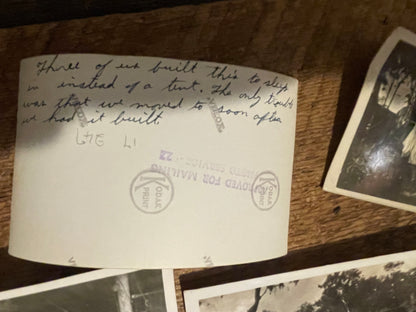 Three of us built this to sleep
in instead of a tent. The only trouble
was that we moved to soon after
we had it built
17 349
VELOX
ROVED FOR MAILING
PHOTO SERVICE - 22
KODAK
K
PRINT
KODAK
K
PRINT